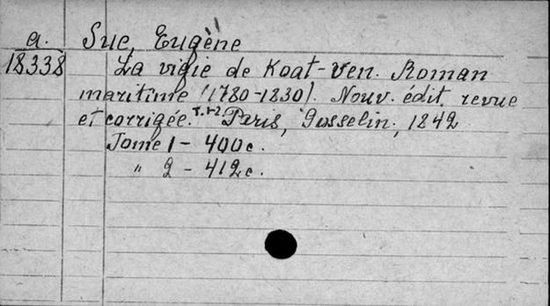 a. Sue, Eugène
18338 La vigie de Koat-Ven. Roman
maritime (1780-1830). Nouv. édit. revue
et corrigée. T. 1-2 Paris, Gosselin, 1842
Tome 1 - 400 с.
" 2 - 412 с.